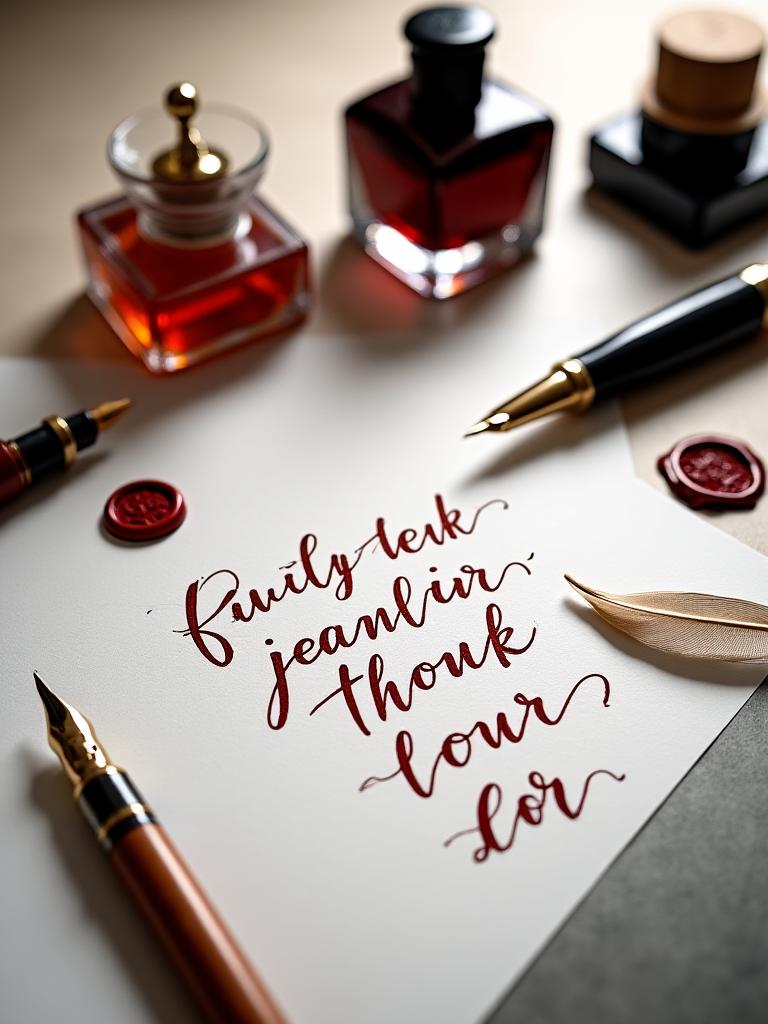 Fuuily terk
jeanlvir
thouk
lour
lor